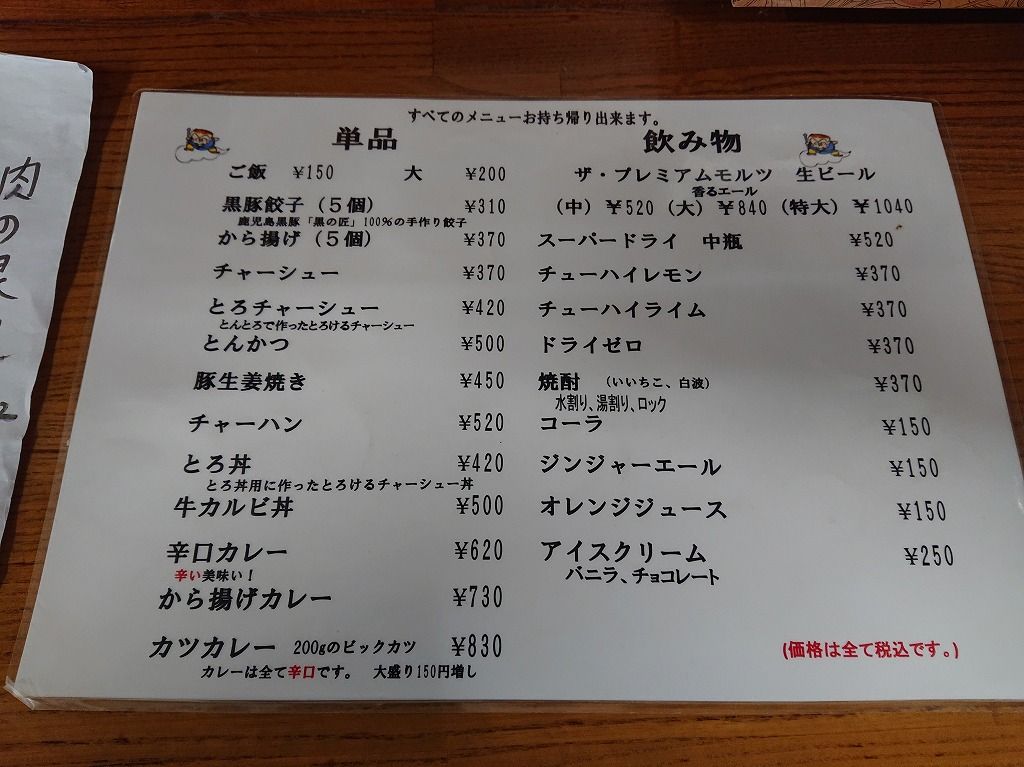 すべてのメニューお持ち帰り出来ます。
単品
ご飯 ¥150 大 ¥200
黒豚餃子(5個) ¥310
鹿児島黒豚「黒の匠」100%の手作り餃子
から揚げ(5個) ¥370
チャーシュー ¥370
とろチャーシュー ¥420
とんとろで作ったとろけるチャーシュー
とんかつ ¥500
豚生姜焼き ¥450
チャーハン ¥520
とろ丼 ¥420
とろ丼用に作ったとろけるチャーシュー丼
牛カルビ丼 ¥500
辛口カレー ¥620
辛い美味い!
から揚げカレー ¥730
カツカレー 200gのビックカツ ¥830
カレーは全て辛口です。 大盛り150円増し
飲み物
ザ・プレミアムモルツ 生ビール
香るエール
(中)¥520(大)¥840(特大)¥1040
スーパードライ 中瓶 ¥520
チューハイレモン ¥370
チューハイライム ¥370
ドライゼロ ¥370
焼酎 (いいちこ、白波) ¥370
水割り、湯割り、ロック
コーラ ¥150
ジンジャーエール ¥150
オレンジジュース ¥150
アイスクリーム ¥250
バニラ、チョコレート
(価格は全て税込です。)
肉の